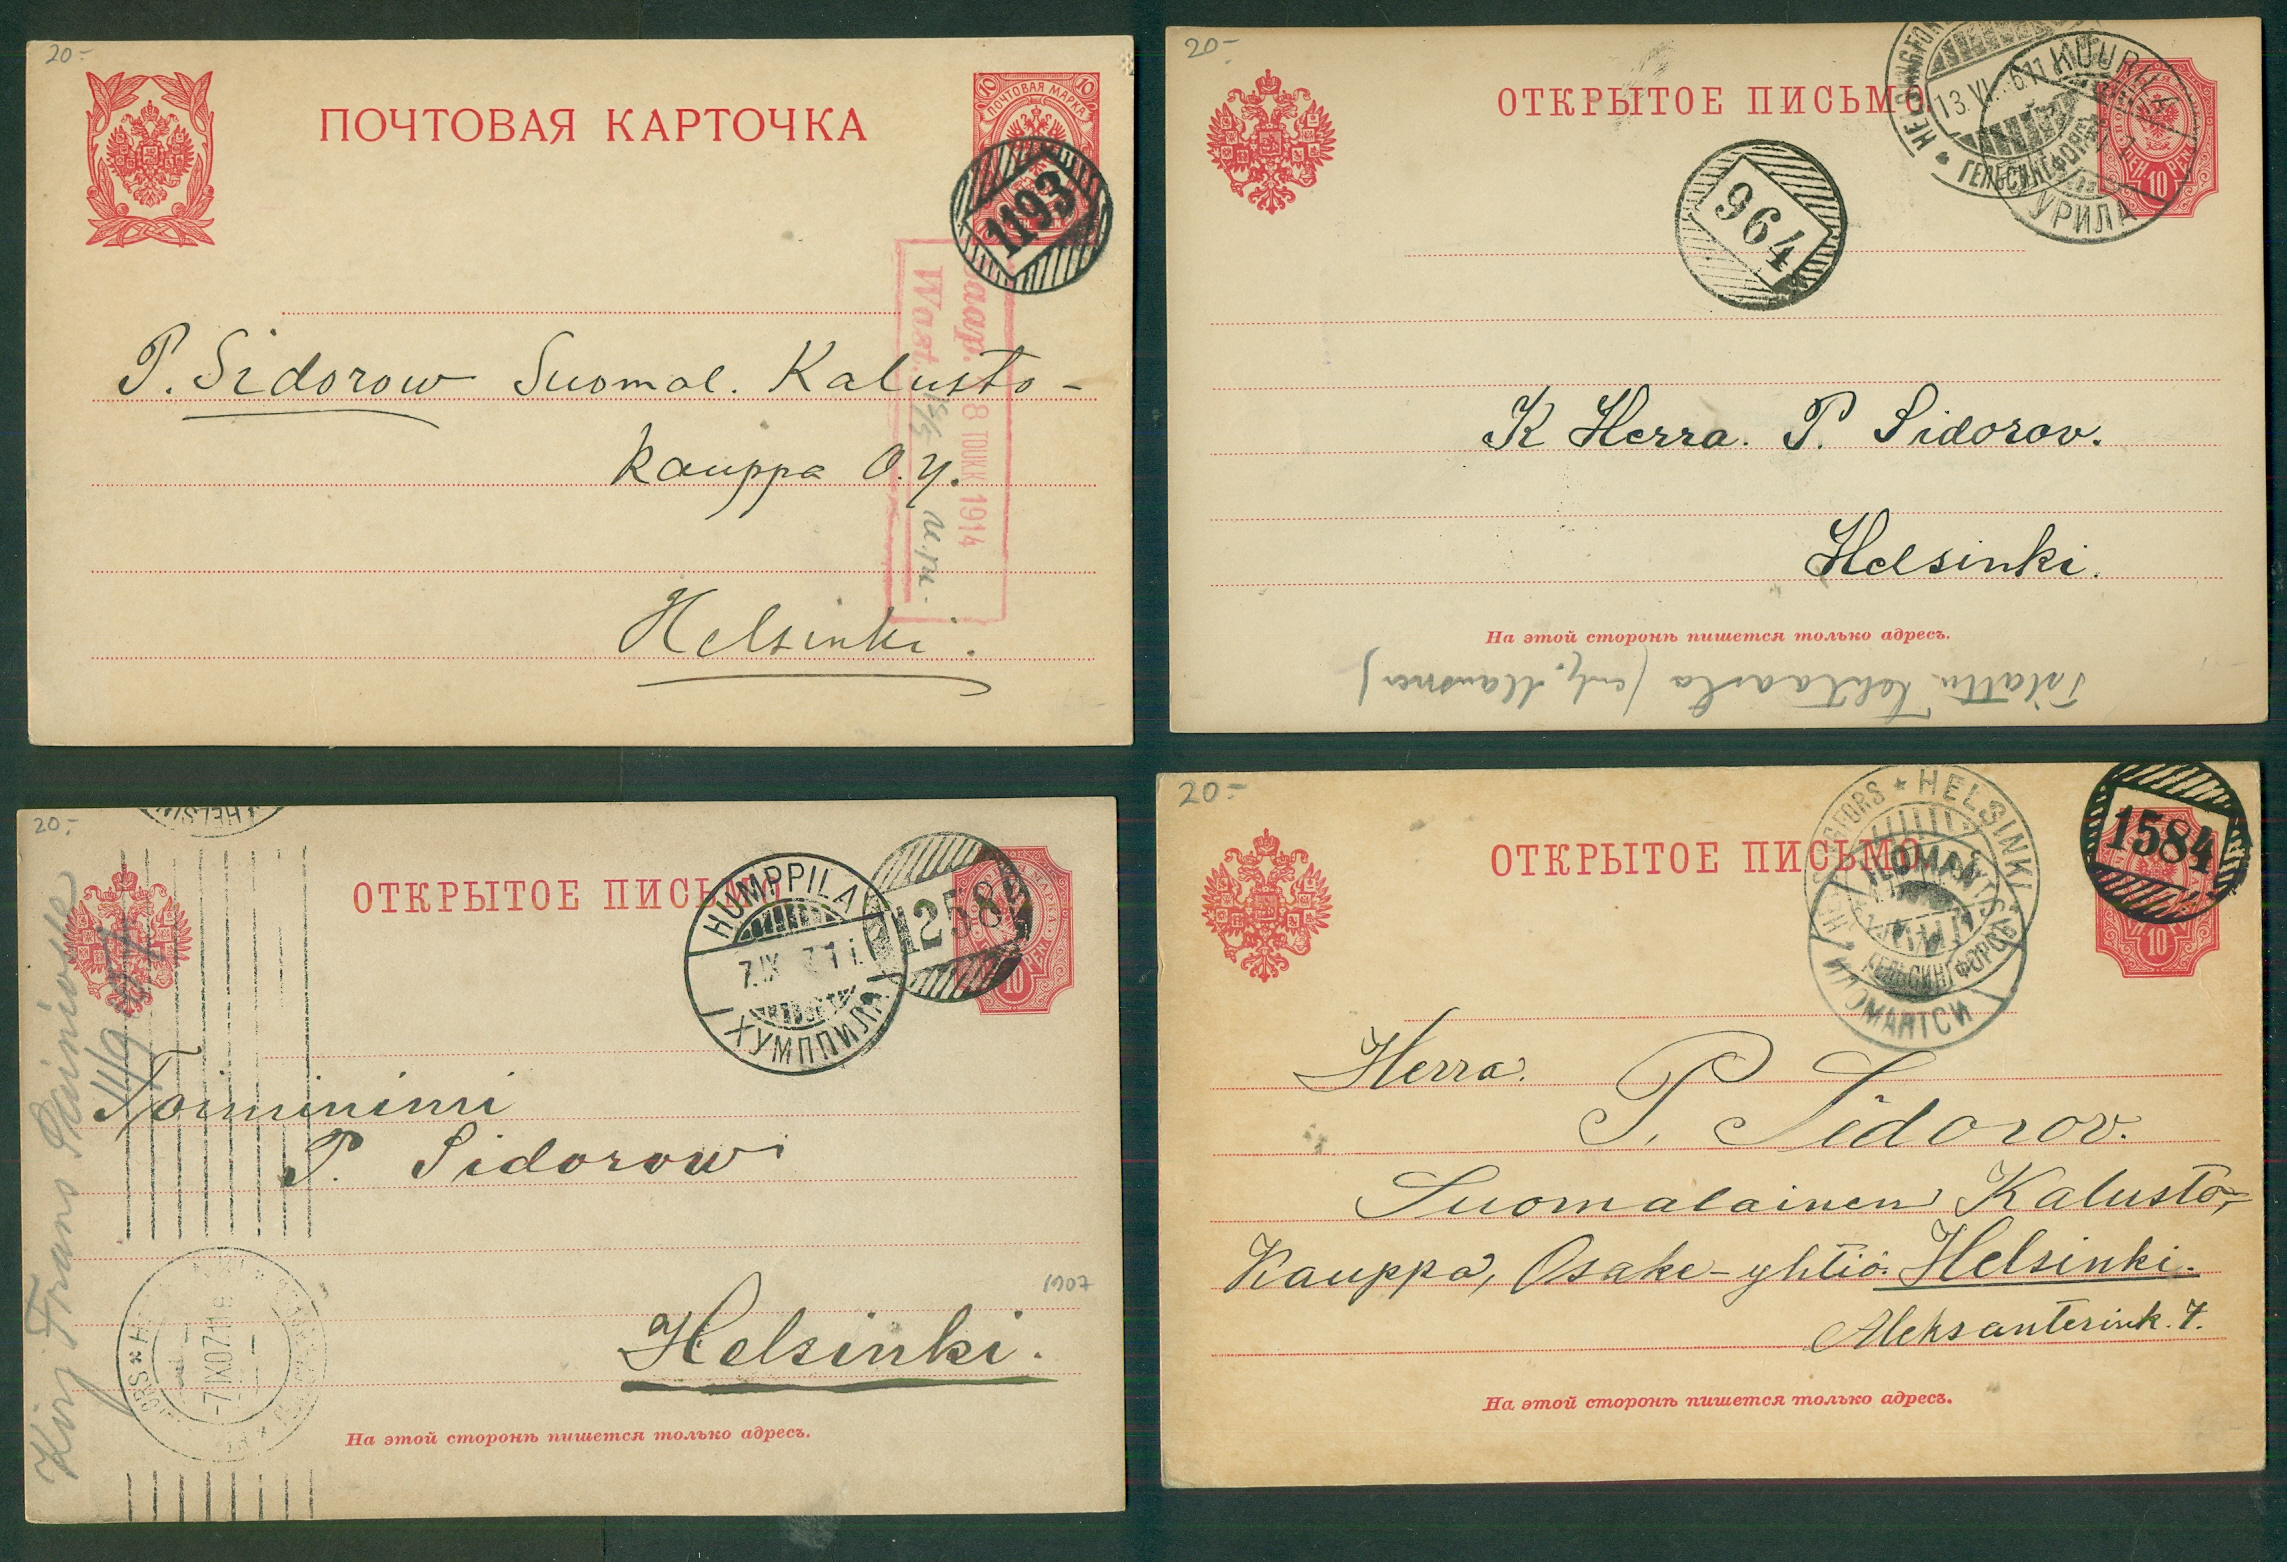 20.-
ПОЧТОВАЯ КАРТОЧКА
10 ПОЧТОВАЯ МАРКА 10
1193
8 TOUKK 1914
Wast.
P. Sidorow Suomal. Kalusto-
kauppa O.Y.
Helsinki.
20.-
ОТКРЫТОЕ ПИСЬМО
13.VI. 6.11
ГЕЛЬСИНГФОРСЪ
10
964
K Herra. P. Sidorov.
Helsinki.
На этой сторонѣ пишется только адресъ.
20.-
ОТКРЫТОЕ ПИСЬМО
HUMPPILA
7.IX
ХУМППИЛА
1258
10
Toiminimi
P. Sidorow
1907
Helsinki.
-7.IX.07.11
Frans
На этой сторонѣ пишется только адресъ.
20.-
ОТКРЫТОЕ ПИСЬМО
HELSINKI
ILOMANTSI
ГЕЛЬСИНГФОРСЪ
ИЛОМАНТСИ
1584
10
Herra.
P. Sidorov.
Suomalainen Kalusto-
Kauppa, Osake-yhtiö. Helsinki.
Aleksanterink. 7.
На этой сторонѣ пишется только адресъ.